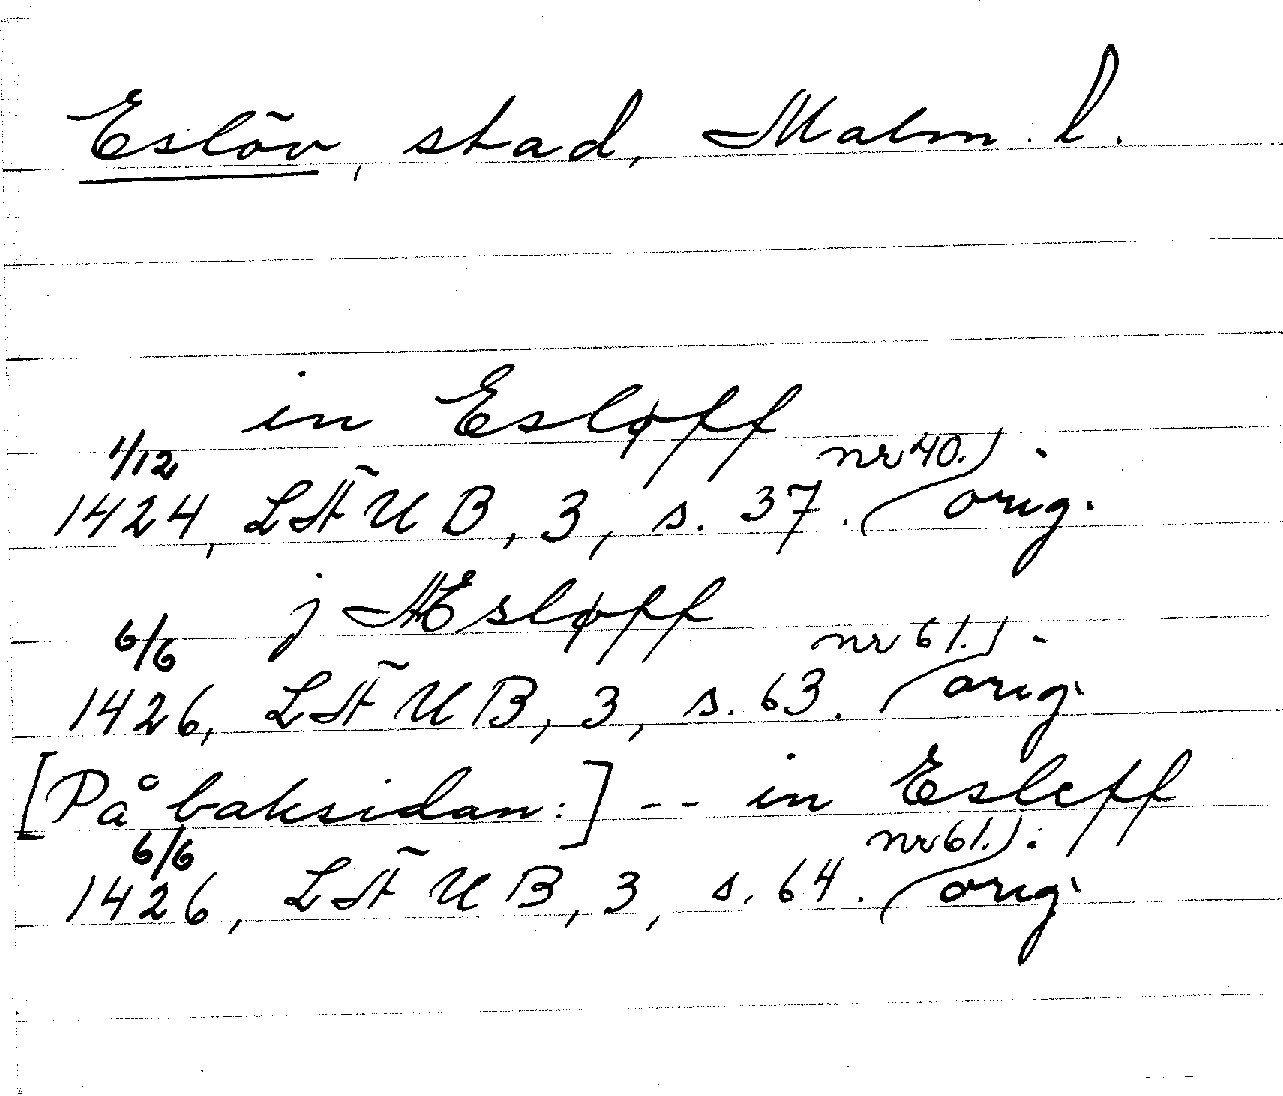 Eslöv, stad, Malm. l.
in Esløff
1/12 nr 40.)
1424, LÄUB, 3, s. 37. (orig.
j Æsløff
6/6 nr 61.)
1426, LÄUB, 3, s. 63. (orig.
[På baksidan:] -- in Esleff
6/6 nr 61.)
1426, LÄUB, 3, s. 64. (orig.